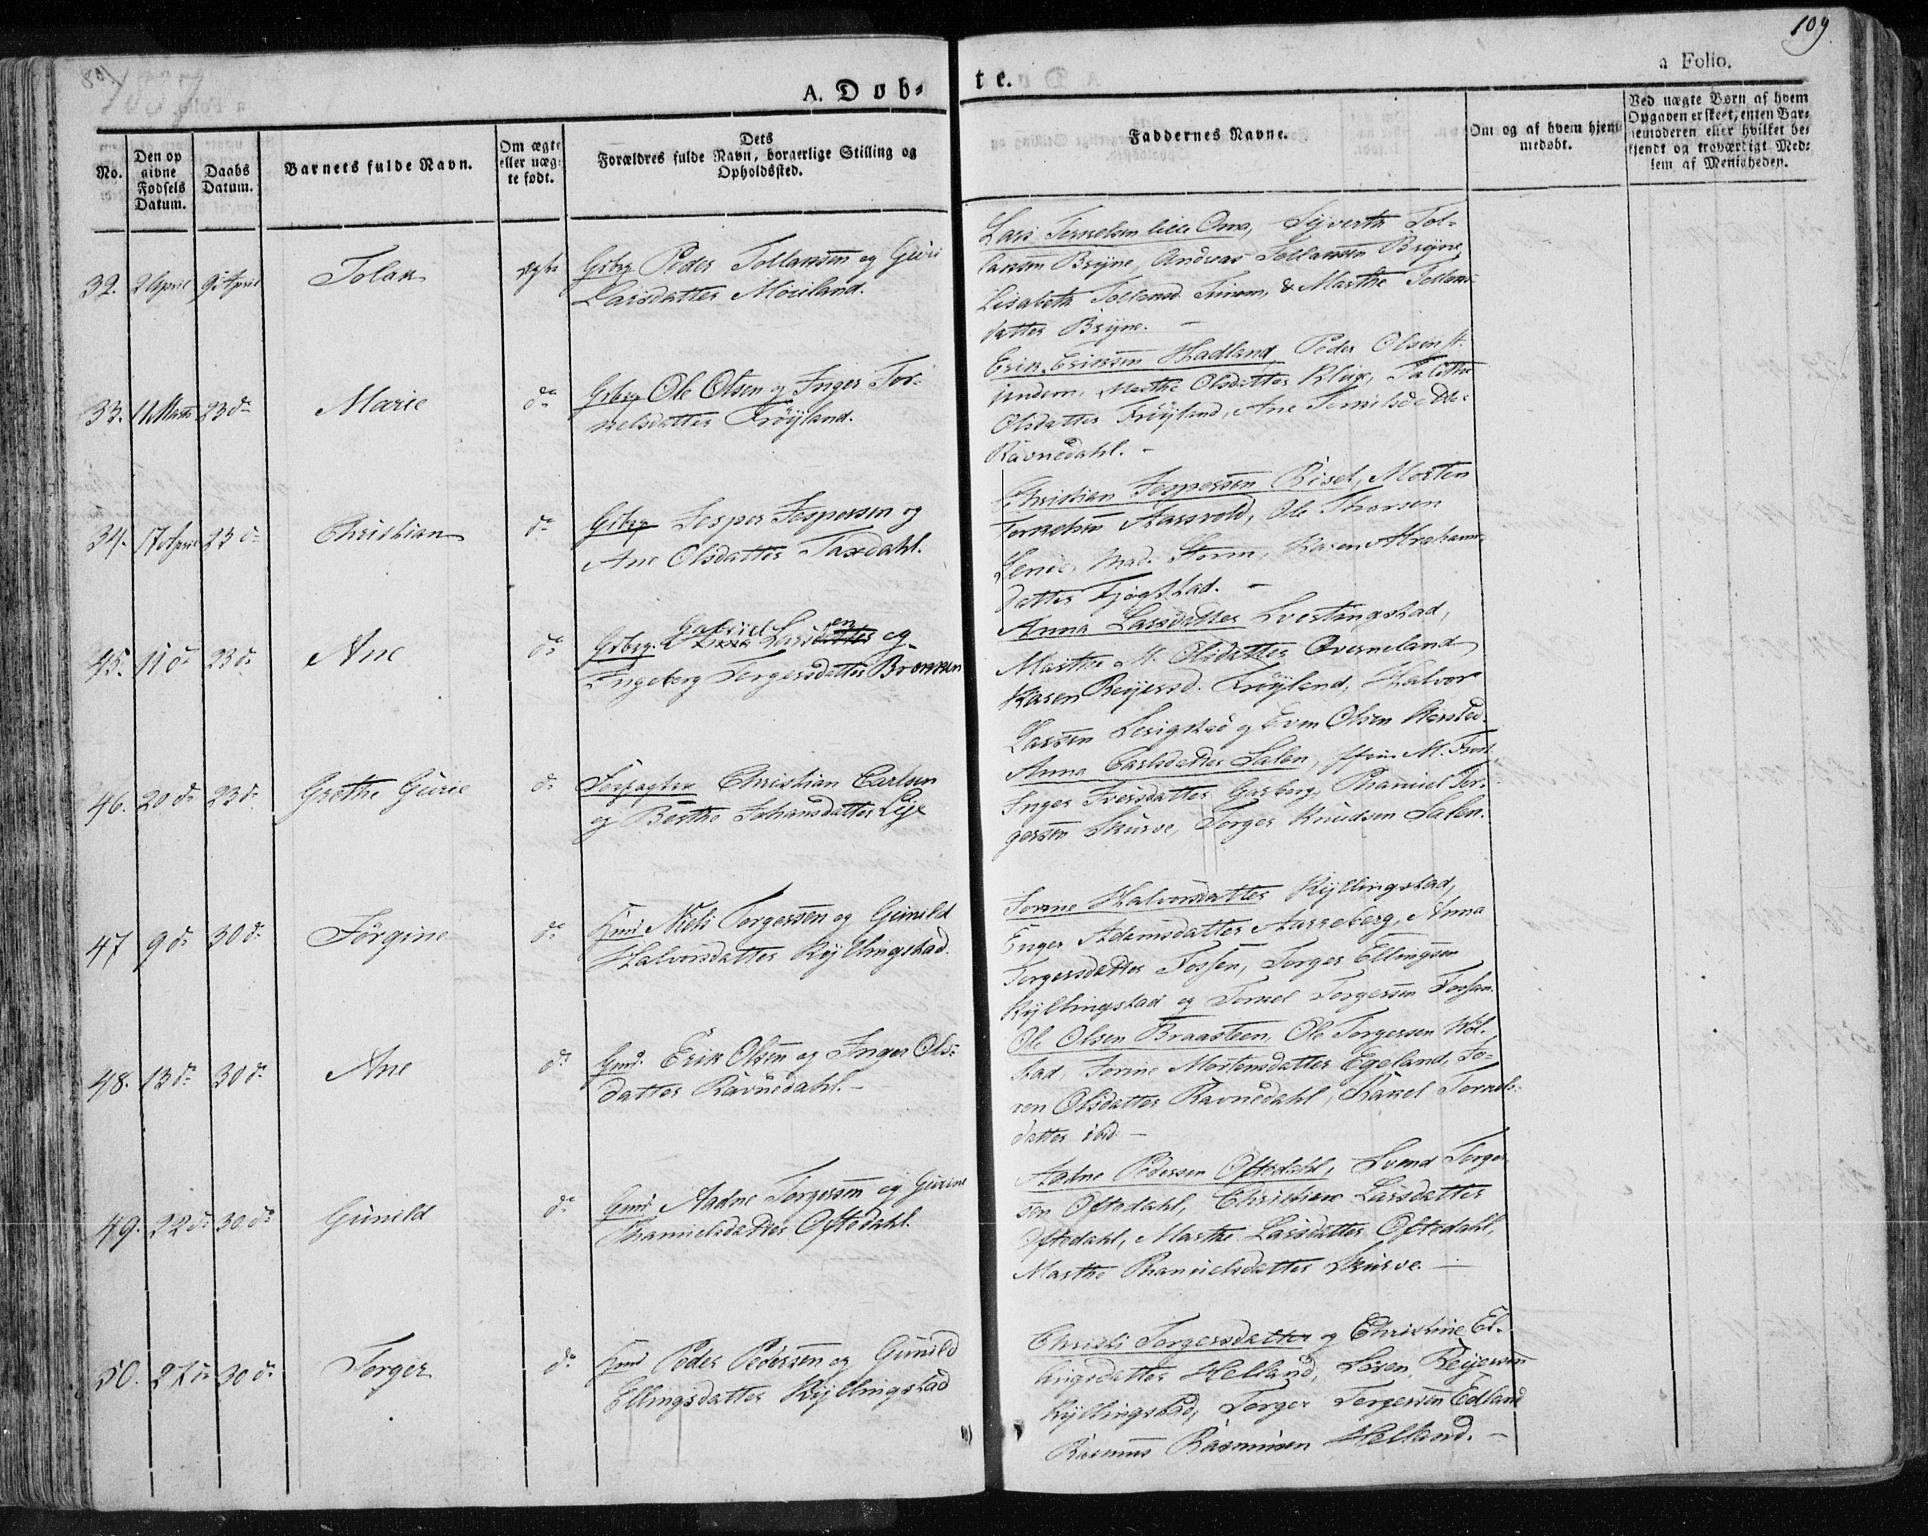 1837
109
A. Døb-
te.
a Folio.
No.
Den op
givne
Fødsels
Datum.
Daabs
Datum.
Barnets fulde Navn.
Om ægte
eller uæg-
te født.
Dets
Forældres fulde Navn, borgerlige Stilling og
Opholdssted.
Faddernes Navne.
Om og af hvem hjem-
medøbt.
Ved uægte Børn af hvem
Opgaven er skeet, enten Bar-
nemoderen eller hvilket be-
kjendt og troværdigt Med-
lem af Menigheden.
32. 2 April 9 April Tolak ægte Grbrg Peder Tollaksen og Guri
Larsdatter Moiland.
Lars Tornelsen lille Oma, Syvert Tol-
laksen Bryne, Andreas Tollaksen Bryne
Lisabeth Tollaksd. & Marthe Tollaks-
datter Bryne.
33. 11 Marts 23 d Marie do Grbrg Ole Olsen og Inger Tor-
nelsdatter Frøyland.
Erik Eriksen Hadland, Peder Olsen
Marthe Olsdatter
Olsdatter Frøyland, Ane Tornelsdatter
Ravnedahl.
34. 17 April 23 d Christian do Grbrg Jesper Jespersen og
Ane Olsdatter Taxdahl.
Christian Jespersen Risel, Morten
Tornelsen Aarsvold, Ole Thorsen
Mad. Storm, Karen Abrahams-
datter Fjøgstad.
45. 11 d 23 d Ane do Grbrg. Gabriel Larsen og
Ingeborg Torgersdatter Bronnen
Anna Larsdatter
Marthe M. Olsdatter Qverneland
Karen Reijersd. Frøyland, Halvor
Larsen og Even Olsen
46. 20 d 23 d Grethe Gurie do Christian Carlsen
og Berthe Johansdatter Lye
Anna Carlsdatter Salen,
Inger Iversdatter Garberg, Thamiel Tor-
gersen Skurve, Torger Knudsen Salen.
47 9 d 30 d Jørgine do Gmd Niels Torgersen og Gunild
Halvorsdatter Kyllingstad.
Jorine Halvorsdatter Kyllingstad,
Inger Adamsdatter Aarreberg, Anna
Torgersdatter Fossen, Torger Ellingsen
Kyllingstad og Tornel Torgersen Fossan.
48. 13 d 30 d Ane do Gmd. Erik Olsen og Inger Ols-
datter Ravnedahl.
Ole Olsen Braasteen, Ole Torgersen Hol-
stad, Jorine Mortensdatter Egeland, To-
ren Olsdatter Ravnedahl, Rakel Tornels-
datter ibid.
49. 22 d 30 d Gunild do Gmd Aadne Torgersen og Gurine
Thamielsdatter Oftedahl.
Aadne Pedersen Oftedahl, Svend Torger-
sen Oftedahl, Christine Larsdatter
Oftedahl, Marthe Larsdatter Oftedahl,
Marthe Thamielsdatter Skurve.
50. 27 d 30 d Torger do Gmd Peder Pedersen og Gunild
Ellingsdatter Kyllingstad
Christi Torgersdatter og Christine El-
lingsdatter Helland, Soren Reijersen
Kyllingstad, Torger Torgersen Edland
Rasmus Rasmusen Helland.